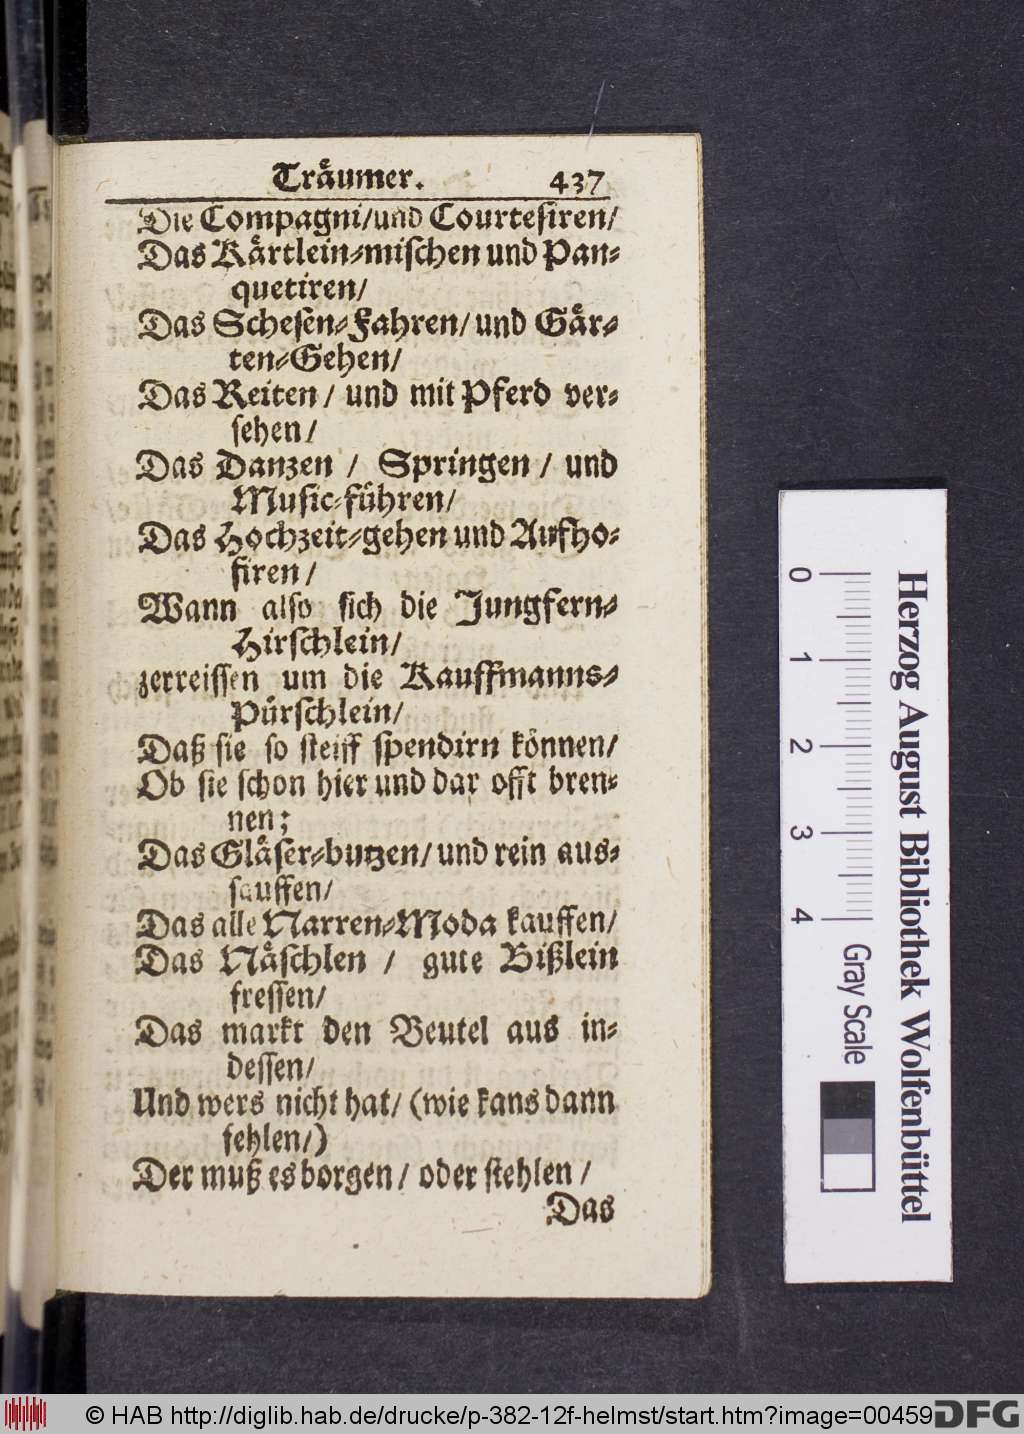 Träumer. 437
Die Compagni/und Courtesiren/
Das Kärtlein-mischen und Pan-
quetiren/
Das Schesen-Fahren/ und Gär-
ten-Gehen/
Das Reiten / und mit Pferd ver-
sehen/
Das Danzen / Springen / und
Music-führen/
Das Hochzeit-gehen und Aufho-
firen/
Wann also sich die Jungfern-
Hirschlein/
zerreissen um die Kauffmanns-
Pürschlein/
Daß sie so steiff spendirn können/
Ob sie schon hier und dar offt bren-
nen;
Das Gläser-butzen/ und rein aus-
sauffen/
Das alle Narren-Moda kauffen/
Das Näschlen / gute Bißlein
fressen/
Das markt den Beutel aus in-
dessen/
Und wers nicht hat/ (wie kans dann
fehlen/)
Der muß es borgen / oder stehlen /
Das
0 1 2 3 4 Gray Scale
Herzog August Bibliothek Wolfenbüttel
© HAB http://diglib.hab.de/drucke/p-382-12f-helmst/start.htm?image=00459 DFG